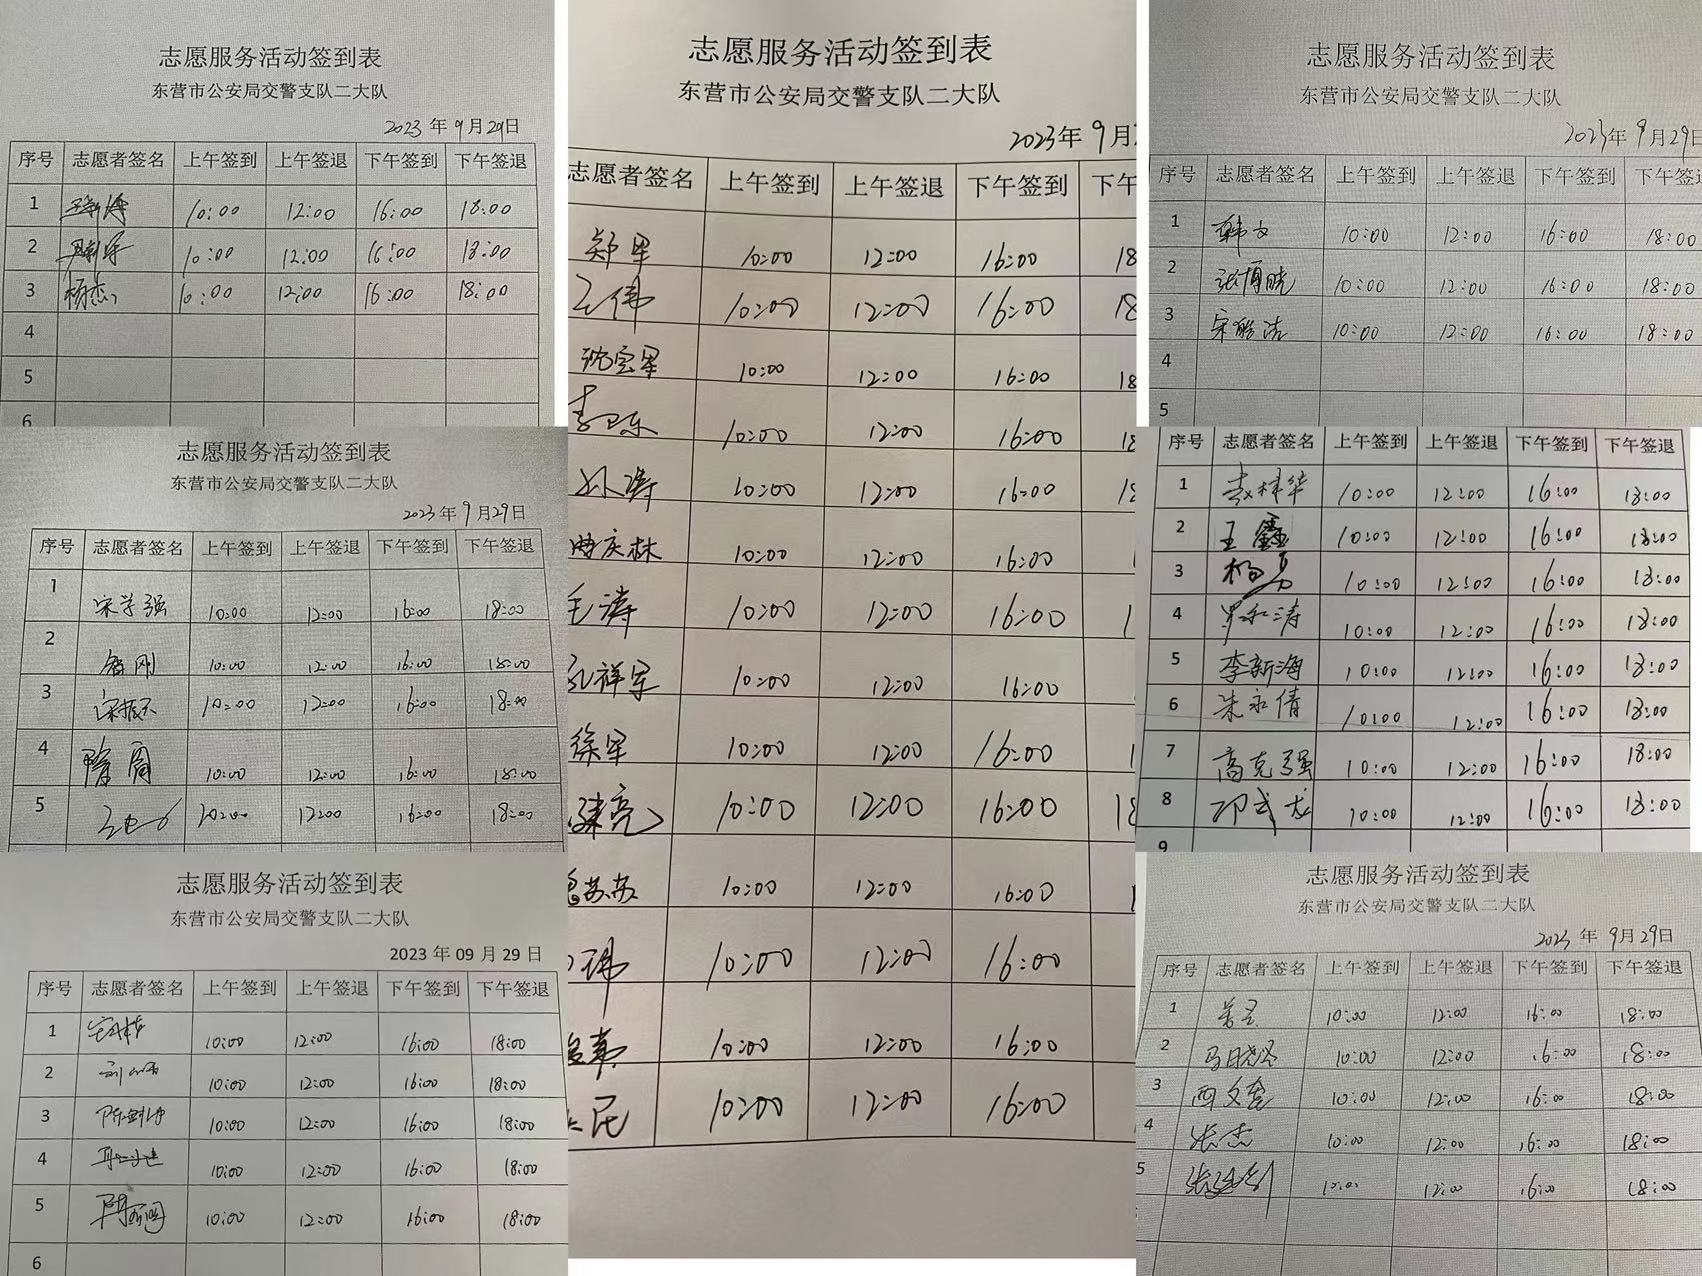 志愿服务活动签到表
东营市公安局交警支队二大队
2023 年 9 月 29 日
序号 志愿者签名 上午签到 上午签退 下午签到 下午签退
1 10:00 12:00 16:00 18:00
2 10:00 12:00 16:00 18:00
3 杨杰 10:00 12:00 16:00 18:00
4
5
6
志愿服务活动签到表
东营市公安局交警支队二大队
2023 年 9 月 29 日
序号 志愿者签名 上午签到 上午签退 下午签到 下午签退
1 宋学强 10:00 12:00 16:00 18:00
2 刚 10:00 12:00 16:00 18:00
3 10:00 12:00 16:00 18:00
4 10:00 12:00 16:00 18:00
5 10:00 12:00 16:00 18:00
志愿服务活动签到表
东营市公安局交警支队二大队
2023 年 09 月 29 日
序号 志愿者签名 上午签到 上午签退 下午签到 下午签退
1 10:00 12:00 16:00 18:00
2 10:00 12:00 16:00 18:00
3 10:00 12:00 16:00 18:00
4 10:00 12:00 16:00 18:00
5 10:00 12:00 16:00 18:00
6
志愿服务活动签到表
东营市公安局交警支队二大队
2023年 9月
志愿者签名 上午签到 上午签退 下午签到 下午
郑军 10:00 12:00 16:00 18
王伟 10:00 12:00 16:00 18
10:00 12:00 16:00 18
李卫东 10:00 12:00 16:00 18
孙涛 10:00 12:00 16:00 18
庆林 10:00 12:00 16:00
毛涛 10:00 12:00 16:00
孔祥军 10:00 12:00 16:00
徐军 10:00 12:00 16:00
建亮 10:00 12:00 16:00 18
苏苏 10:00 12:00 16:00
玮 10:00 12:00 16:00
10:00 12:00 16:00
民 10:00 12:00 16:00
志愿服务活动签到表
东营市公安局交警支队二大队
2023年 9月29日
序号 志愿者签名 上午签到 上午签退 下午签到 下午签退
1 韩文 10:00 12:00 16:00 18:00
2 张博晓 10:00 12:00 16:00 18:00
3 宋皓洁 10:00 12:00 16:00 18:00
4
5
序号 志愿者签名 上午签到 上午签退 下午签到 下午签退
1 10:00 12:00 16:00 18:00
2 王鑫 10:00 12:00 16:00 18:00
3 杨勇 10:00 12:00 16:00 18:00
4 10:00 12:00 16:00 18:00
5 李新海 10:00 12:00 16:00 18:00
6 朱永倩 10:00 12:00 16:00 18:00
7 高克强 10:00 12:00 16:00 18:00
8 邛武龙 10:00 12:00 16:00 18:00
9
志愿服务活动签到表
东营市公安局交警支队二大队
2023 年 9月29日
序号 志愿者签名 上午签到 上午签退 下午签到 下午签退
1 10:00 12:00 16:00 18:00
2 10:00 12:00 16:00 18:00
3 10:00 12:00 16:00 18:00
4 张杰 10:00 12:00 16:00 18:00
5 10:00 12:00 16:00 18:00